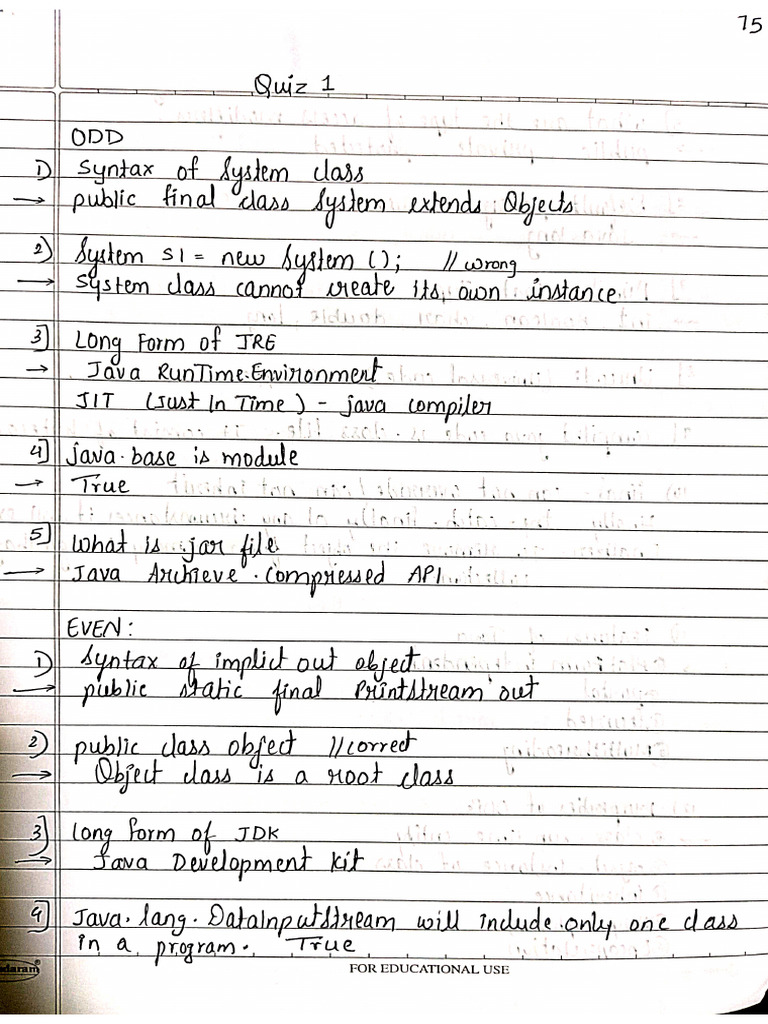 75
Quiz 1
ODD
1) Syntax of System class
→ public final class System extends Objects
2) System S1 = new System (); // wrong
→ System class cannot create its own instance.
3] Long Form of JRE
→ Java RunTime Environment
JIT (Just In Time) - java compiler
4] java.base is module
→ True
5] What is jar file
→ Java Archieve. Compressed API
EVEN:
1) Syntax of implict out object
→ public static final Printstream out
2) public class object // correct
→ Object class is a root class
3] Long form of JDK
→ Java Development kit
4] Java.lang.DataInputStream will include only one class
in a program. True
FOR EDUCATIONAL USE